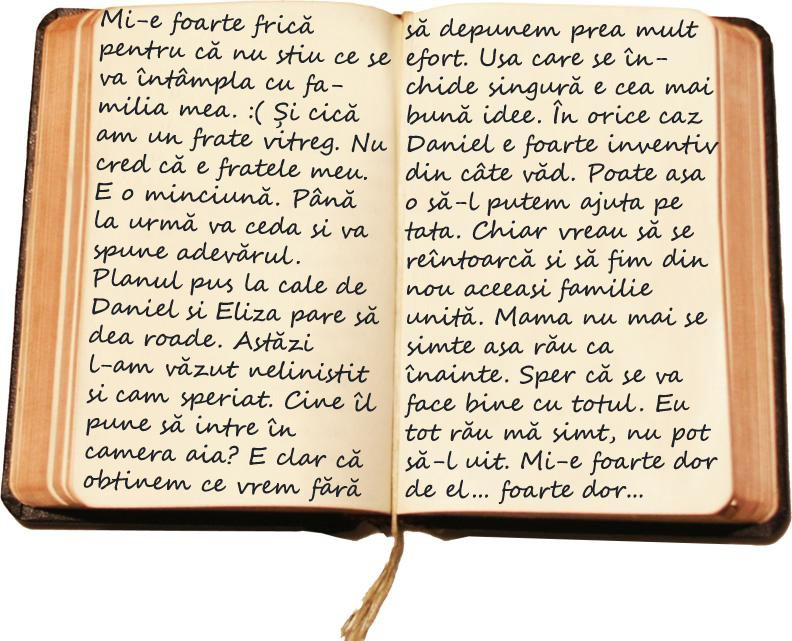 Mi-e foarte frică
pentru că nu stiu ce se
va întâmpla cu fa-
milia mea. :( Și cică
am un frate vitreg. Nu
cred că e fratele meu.
E o minciună. Până
la urmă va ceda si va
spune adevărul.
Planul pus la cale de
Daniel si Eliza pare să
dea roade. Astăzi
l-am văzut nelinistit
si cam speriat. Cine îl
pune să intre în
camera aia? E clar că
obtinem ce vrem fără
să depunem prea mult
efort. Usa care se în-
chide singură e cea mai
bună idee. În orice caz
Daniel e foarte inventiv
din câte văd. Poate asa
o să-l putem ajuta pe
tata. Chiar vreau să se
reîntoarcă si să fim din
nou aceeasi familie
unită. Mama nu mai se
simte asa rău ca
înainte. Sper că se va
face bine cu totul. Eu
tot rău mă simt, nu pot
să-l uit. Mi-e foarte dor
de el... foarte dor...